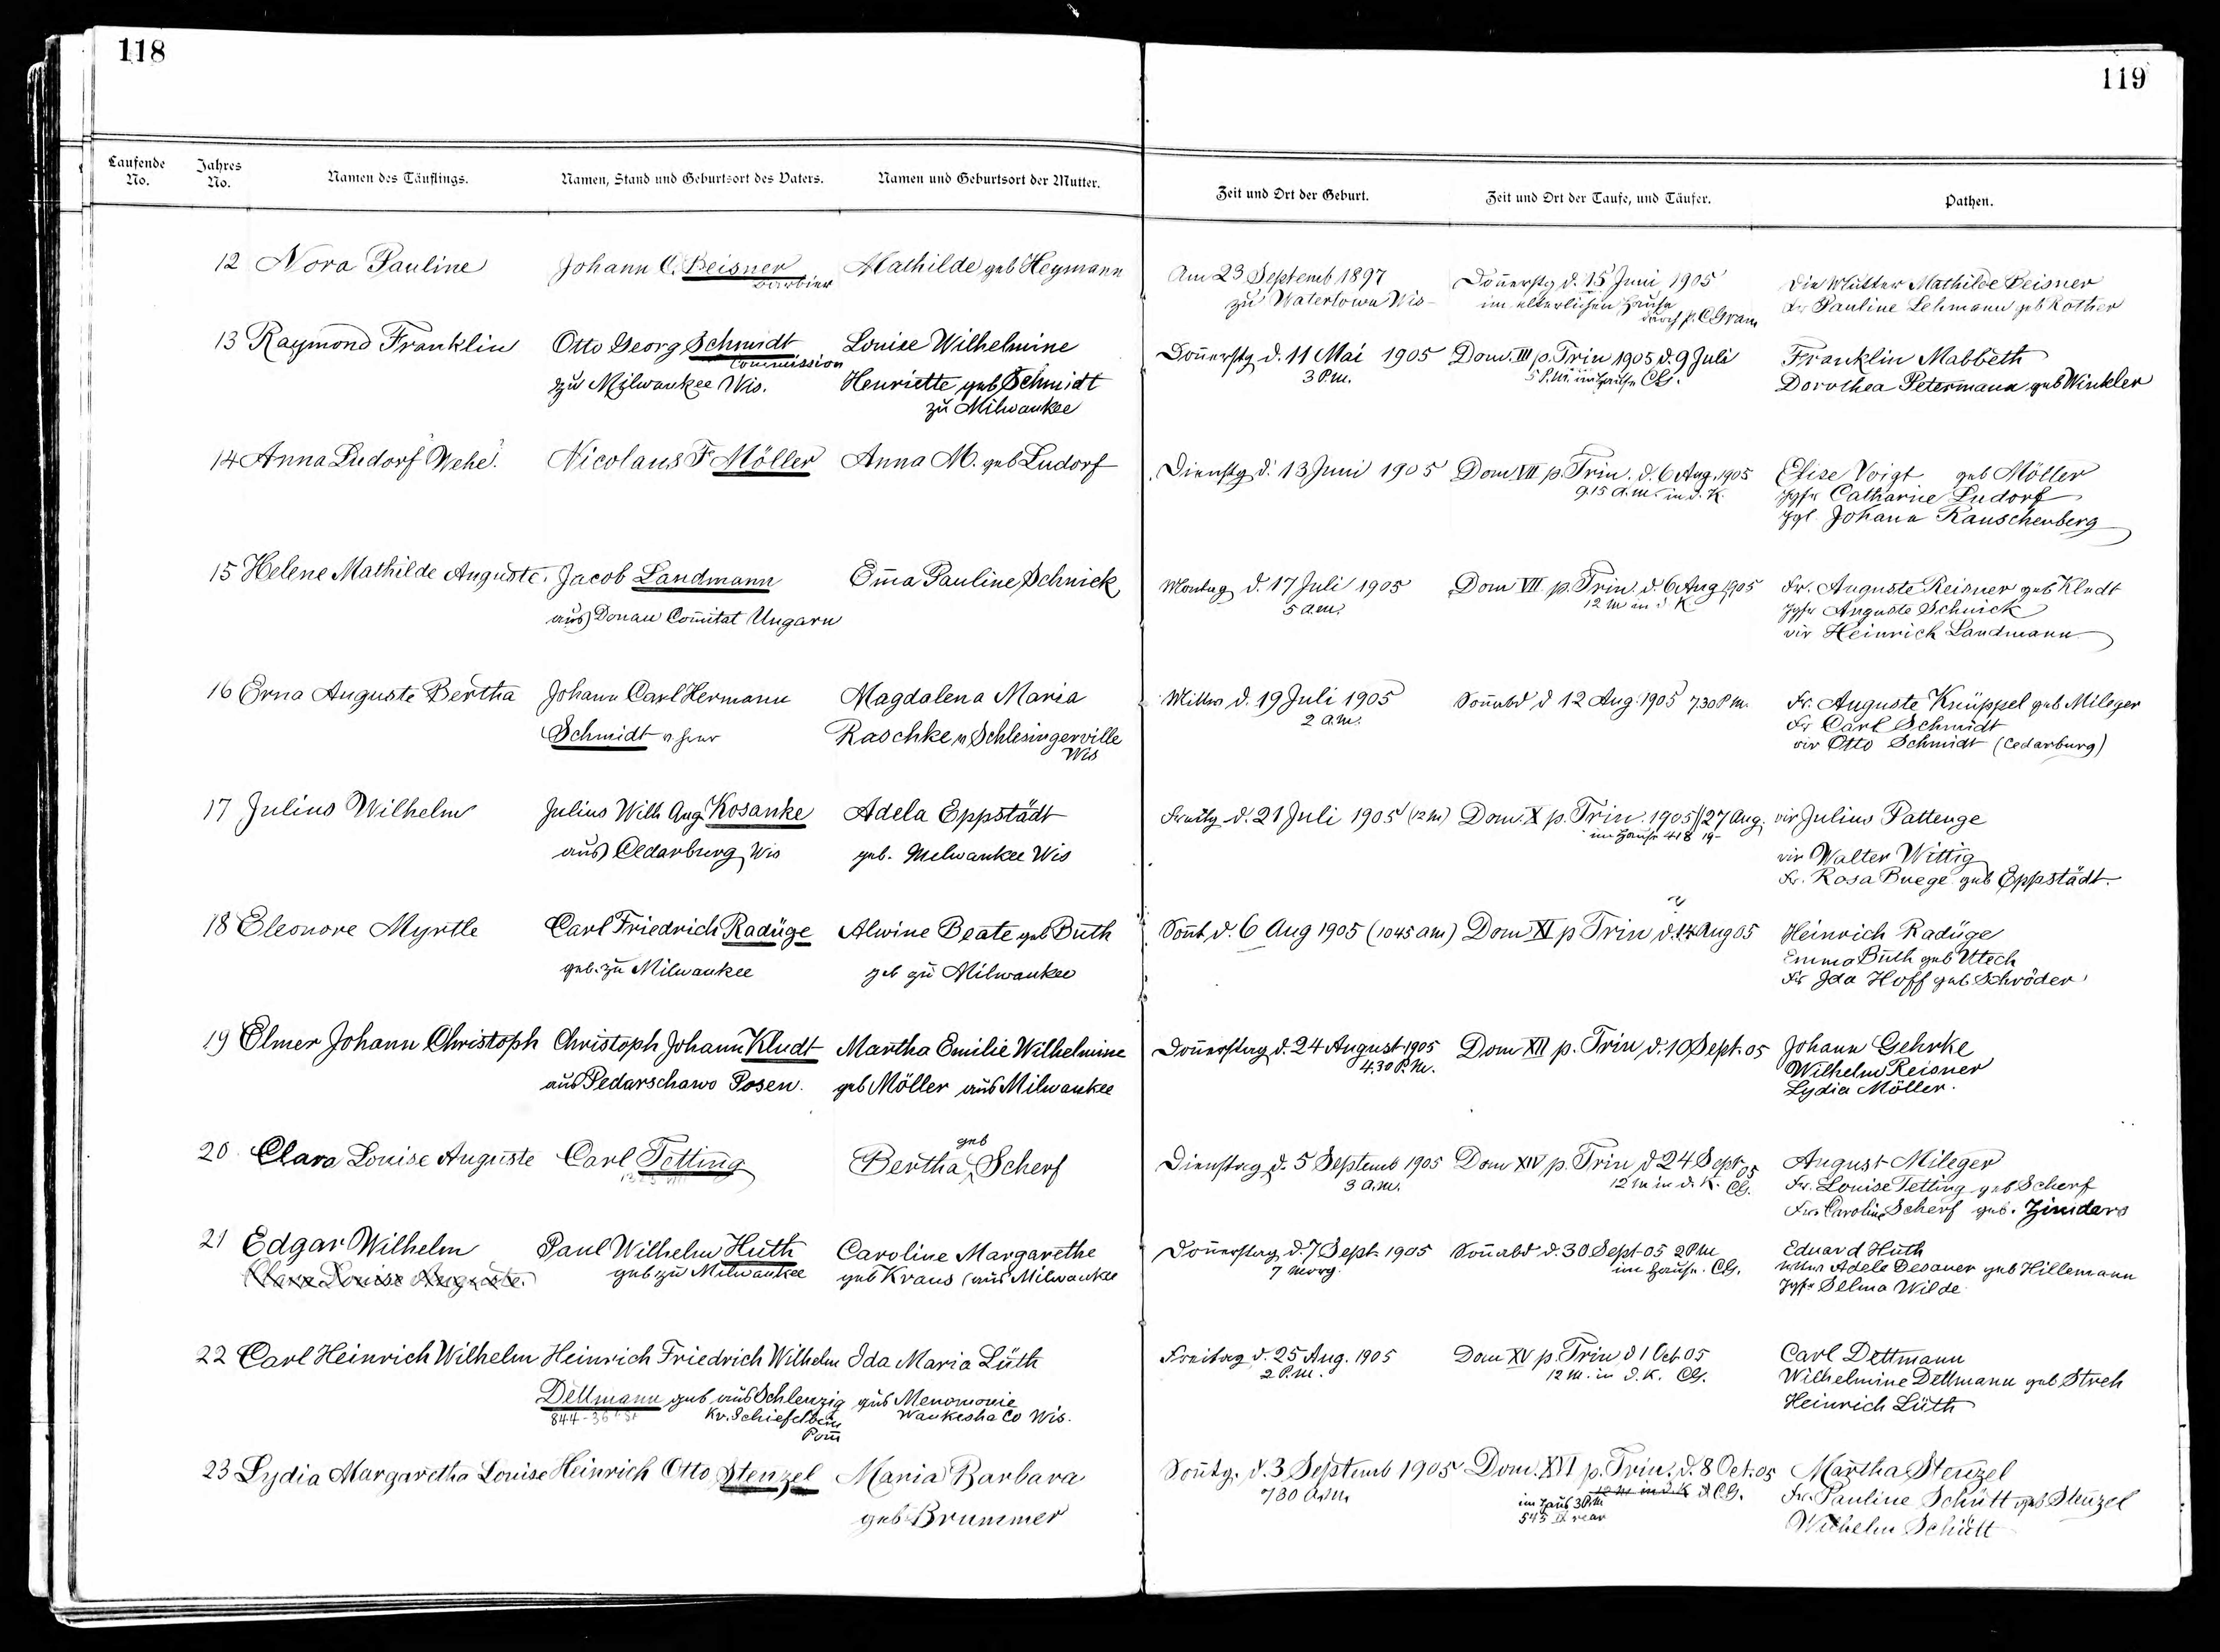 118
119
Laufende No.
Jahres No.
Namen des Täuflings.
Namen, Stand und Geburtsort des Vaters.
Namen und Geburtsort der Mutter.
Zeit und Ort der Geburt.
Zeit und Ort der Taufe, und Täufer.
Pathen.
12 Nora Pauline
Johann C. Beisner
Barbier
Mathilde geb Heymann
Am 23 Septemb 1897
zu Watertown Wis
Don̄erstg d. 15 Juni 1905
im elterlichen Hause
durch p. C Gram
Die Mutter Mathilde Beisner
Fr Pauline Lehmann geb Rother
13 Raymond Franklin
Otto Georg Schmidt
Commission
zu Milwaukee Wis.
Louise Wilhelmine
Henriette geb Schmidt
zu Milwaukee
Don̄erstg d. 11 Mai 1905
3 P.m.
Dom. III p. Trin 1905 d. 9 Juli
5 P.M. im Hause CG.
Franklin Mabbeth
Dorothea Petermann geb Winkler
14 Anna Ludorf Wehe.
Nicolaus F Möller
Anna M. geb Ludorf
Dienstg d. 13 Juni 1905
Dom VII p. Trin. d. 6 Aug. 1905
9.15 a.m. in d. K.
Elise Voigt geb Möller
Jgfr Catharine Ludorf
Jgl. Johann Rauschenberg
15 Helene Mathilde Auguste.
Jacob Landmann
aus Donau Com̄itat Ungarn
Em̄a Pauline Schnick
Montag d. 17 Juli 1905
5 a.m.
Dom VII. p. Trin. d. 6 Aug 1905
12 M in d K
Fr. Auguste Reisner geb Kludt
Jgfr Auguste Schnick
vir Heinrich Landmann
16 Erna Auguste Bertha
Johann Carl Hermann
Schmidt v hier
Magdalena Maria
Raschke v Schlesingerville
Wis
Mittw d. 19 Juli 1905
2 a.m.
Son̄abd d 12 Aug. 1905 7.30 P m.
Fr. Auguste Knüppel geb Mileger
Fr Carl Schmidt
vir Otto Schmidt (Cedarburg)
17 Julius Wilhelm
Julius Wilh Aug Kosanke
aus Cedarburg Wis
Adela Eppstädt
geb. Milwaukee Wis
Freitg d. 21 Juli 1905 (12 M)
Dom. X p. Trin. 1905 27 Aug.
im Hause 418 19-
vir Julius Pattenge
vir Walter Wittig
Fr. Rosa Buege geb Eppstädt.
18 Eleonore Myrtle
Carl Friedrich Radüge
geb. zu Milwaukee
Alwine Beate geb Buth
geb zu Milwaukee
Son̄t d. 6 Aug 1905 (10 45 am)
Dom XI p Trin d. Aug 05
Heinrich Radüge
Emma Buth geb Utech
Fr Ida Hoff geb Schröder
19 Elmer Johann Christoph
Christoph Johann Kludt
aus Pedarschawo Posen.
Martha Emilie Wilhelmine
geb Möller aus Milwaukee
Don̄erstag d. 24 August 1905
4.30 P.M.
Dom XII p. Trin d. 10 Sept. 05
Johann Gehrke
Wilhelm Reisner
Lydia Möller.
20 Clara Louise Auguste
Carl Tetting
geb
Bertha Scherf
Dienstag d. 5 Septemb 1905
3 a.m.
Dom XIV p. Trin d 24 Sept 05
12 M in d. K. CG.
August Mileger
Fr. Louise Tetting geb Scherf
Fr. Caroline Scherf geb. Ziniders
21 Edgar Wilhelm
Clara Louise Auguste.
Paul Wilhelm Huth
geb zu Milwaukee
Caroline Margarethe
geb Kraus aus Milwaukee
Don̄erstag d. 7 Sept. 1905
7 Morg.
Son̄abd d. 30 Sept 05 2 P M
im Hause. CG.
Eduard Huth
Adele Desauer geb Hillemann
Jgfr Selma Wilde
22 Carl Heinrich Wilhelm
Heinrich Friedrich Wilhelm
Dettmann geb aus Schlenzig
Kr. Schiefelbein
Pom̄
Ida Maria Lüth
aus Menomonie
Waukesha Co Wis.
Freitag d. 25 Aug. 1905
2 P.M.
Dom XV p. Trin d 1 Oct 05
12 M. in d. K. CG.
Carl Dettmann
Wilhelmine Dettmann geb Streh
Heinrich Lüth
23 Lydia Margaretha Louise
Heinrich Otto Stenzel
Maria Barbara
geb Brummer
Son̄tg. d. 3 Septemb 1905
7 30 A.M.
Dom. XVI p. Trin. d. 8 Oct. 05
12 M in d. K d CG.
im Haus 3 P.M
545 rear
Martha Stenzel
Fr. Pauline Schütt geb Stenzel
Wilhelm Schütt